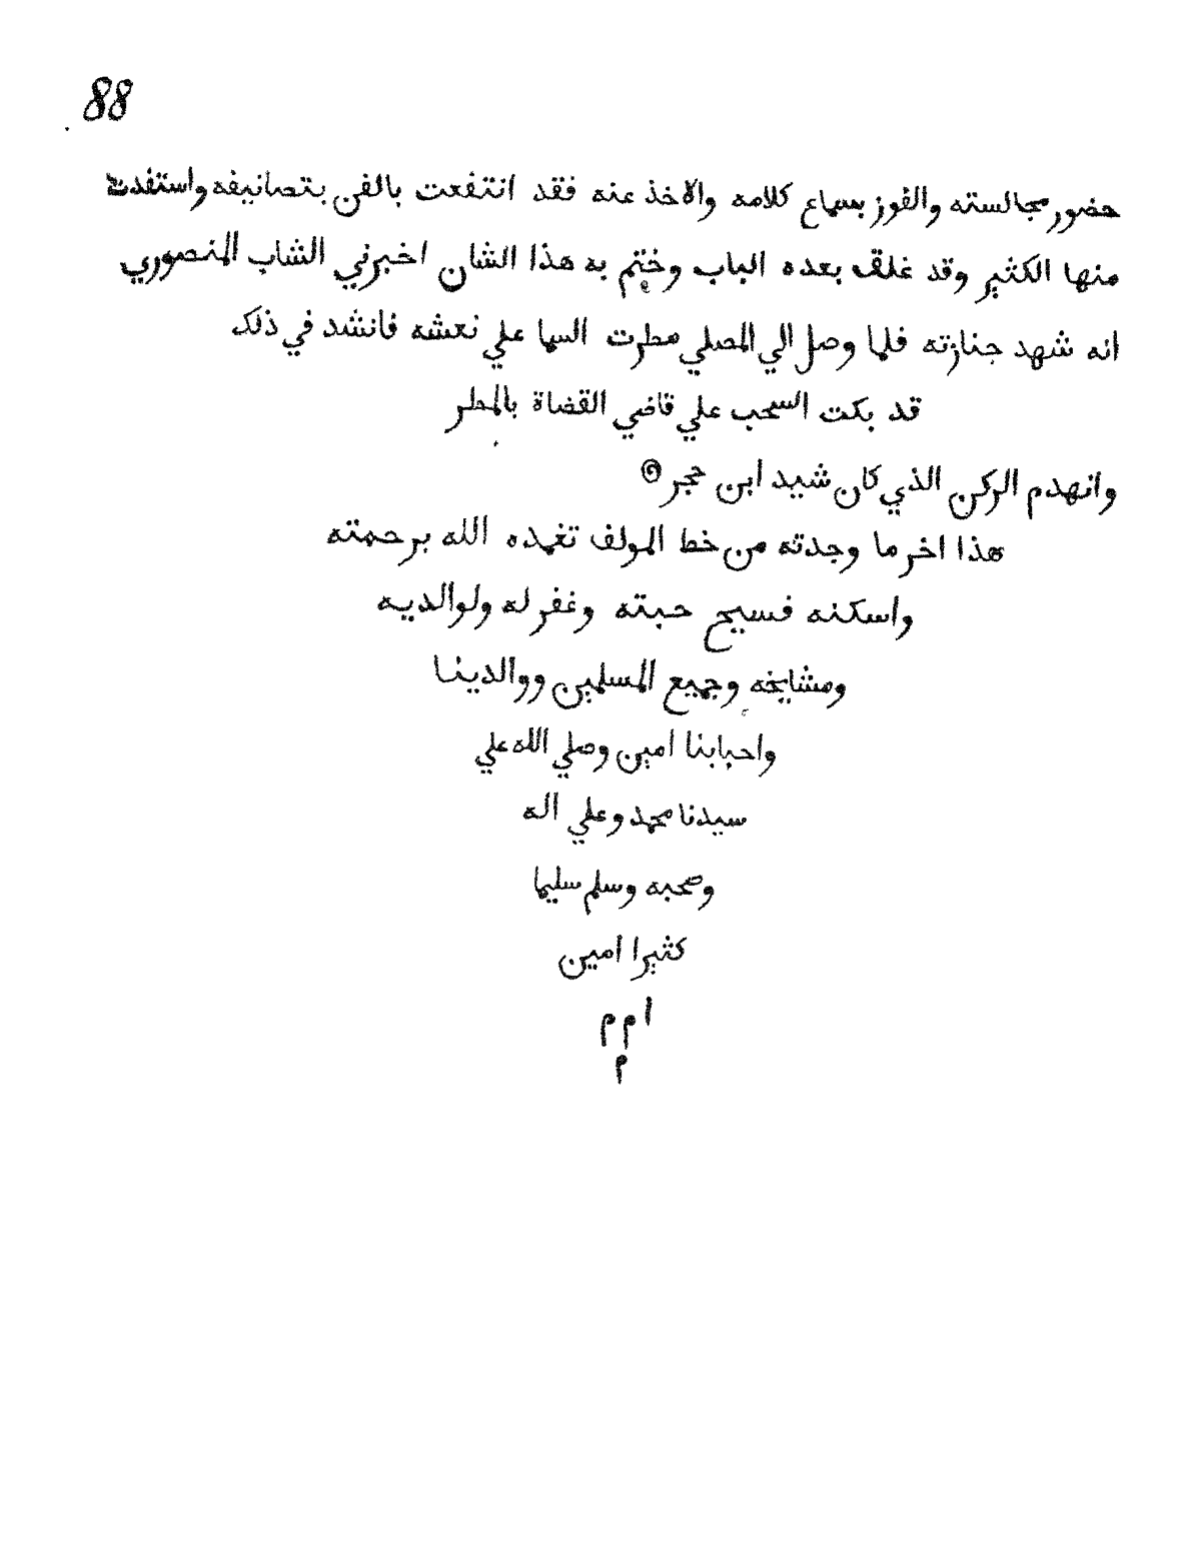 88
حضور مجالسته والفوز بسماع كلامه والاخذ عنه فقد انتفعت بالفن بتصانيفه واستفدت
منها الكثير وقد غلق بعده الباب وختم به هذا الشان اخبرني الشاب المنصوري
انه شهد جنازته فلما وصل الي المصلي مطرت السما علي نعشه فانشد في ذلك
قد بكت السحب علي قاضي القضاة بالمطر
وانهدم الركن الذي كان شيد ابن حجر
هذا اخر ما وجدته من خط المولف تغمده الله برحمته
واسكنه فسيح حبته وغفر له ولوالديه
ومشايخه وجميع المسلمين ووالدينا
واحبابنا امين وصلي الله علي
سيدنا محمد وعلي اله
وصحبه وسلم سليما
كثيرا امين
ا م م
م